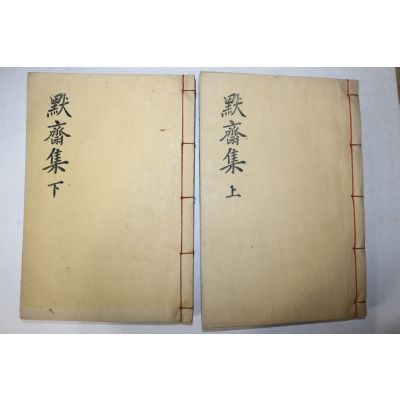 默齋集 上
默齋集 下